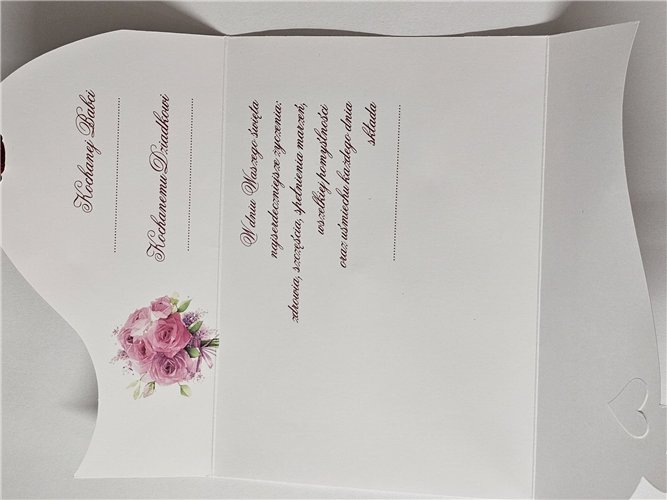 Kochanej Babci
Kochanemu Dziadkowi
W dniu Waszego święta
najserdeczniejsze życzenia:
zdrowia, szczęścia, spełnienia marzeń,
wszelkiej pomyślności
oraz uśmiechu każdego dnia
składa